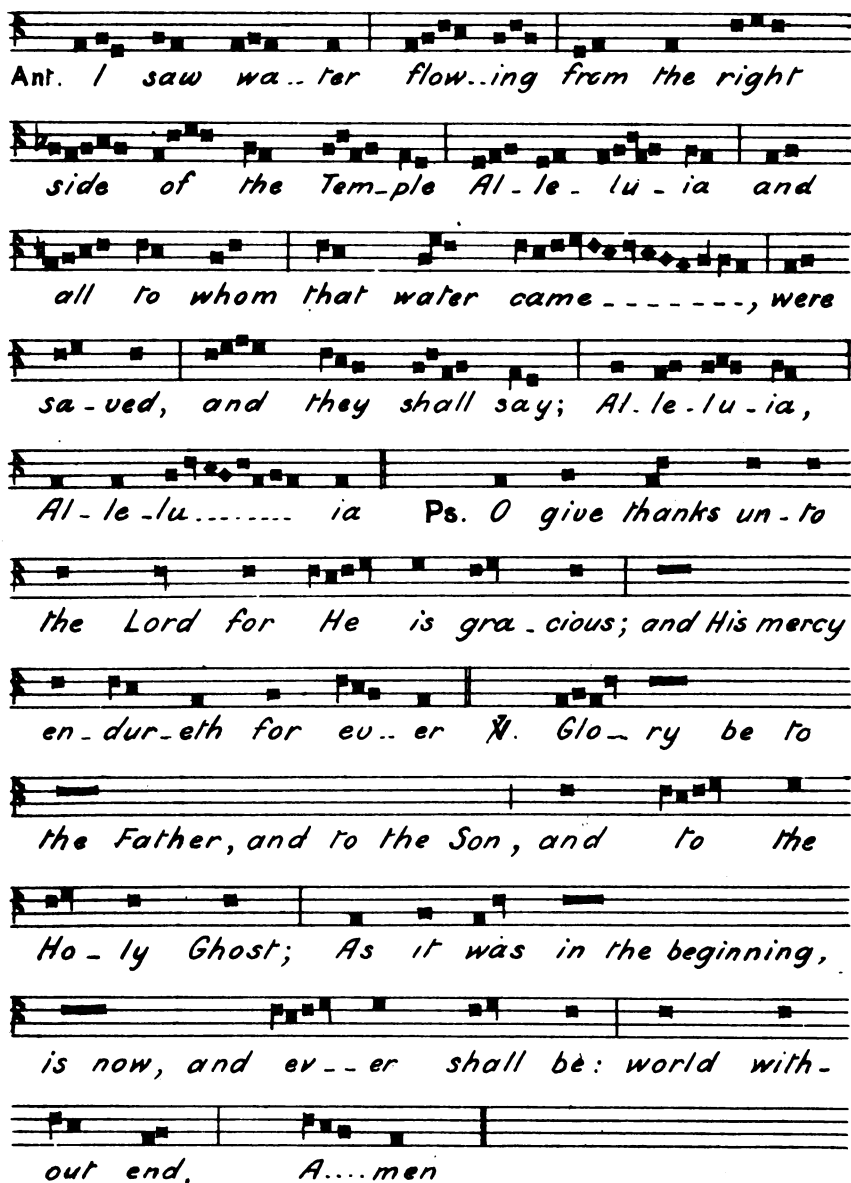 Ant. I saw wa.. ter flow..ing from the right
side of the Tem-ple Al-le-lu-ia and
all to whom that water came -------, were
sa-ved, and they shall say; Al-le-lu-ia,
Al-le-lu......... ia Ps. O give thanks un-to
the Lord for He is gra-cious; and His mercy
en-dur-eth for ev.. er ℣. Glo-ry be to
the Father, and to the Son, and to the
Ho-ly Ghost; As it was in the beginning,
is now, and ev--er shall be: world with-
out end, A....men